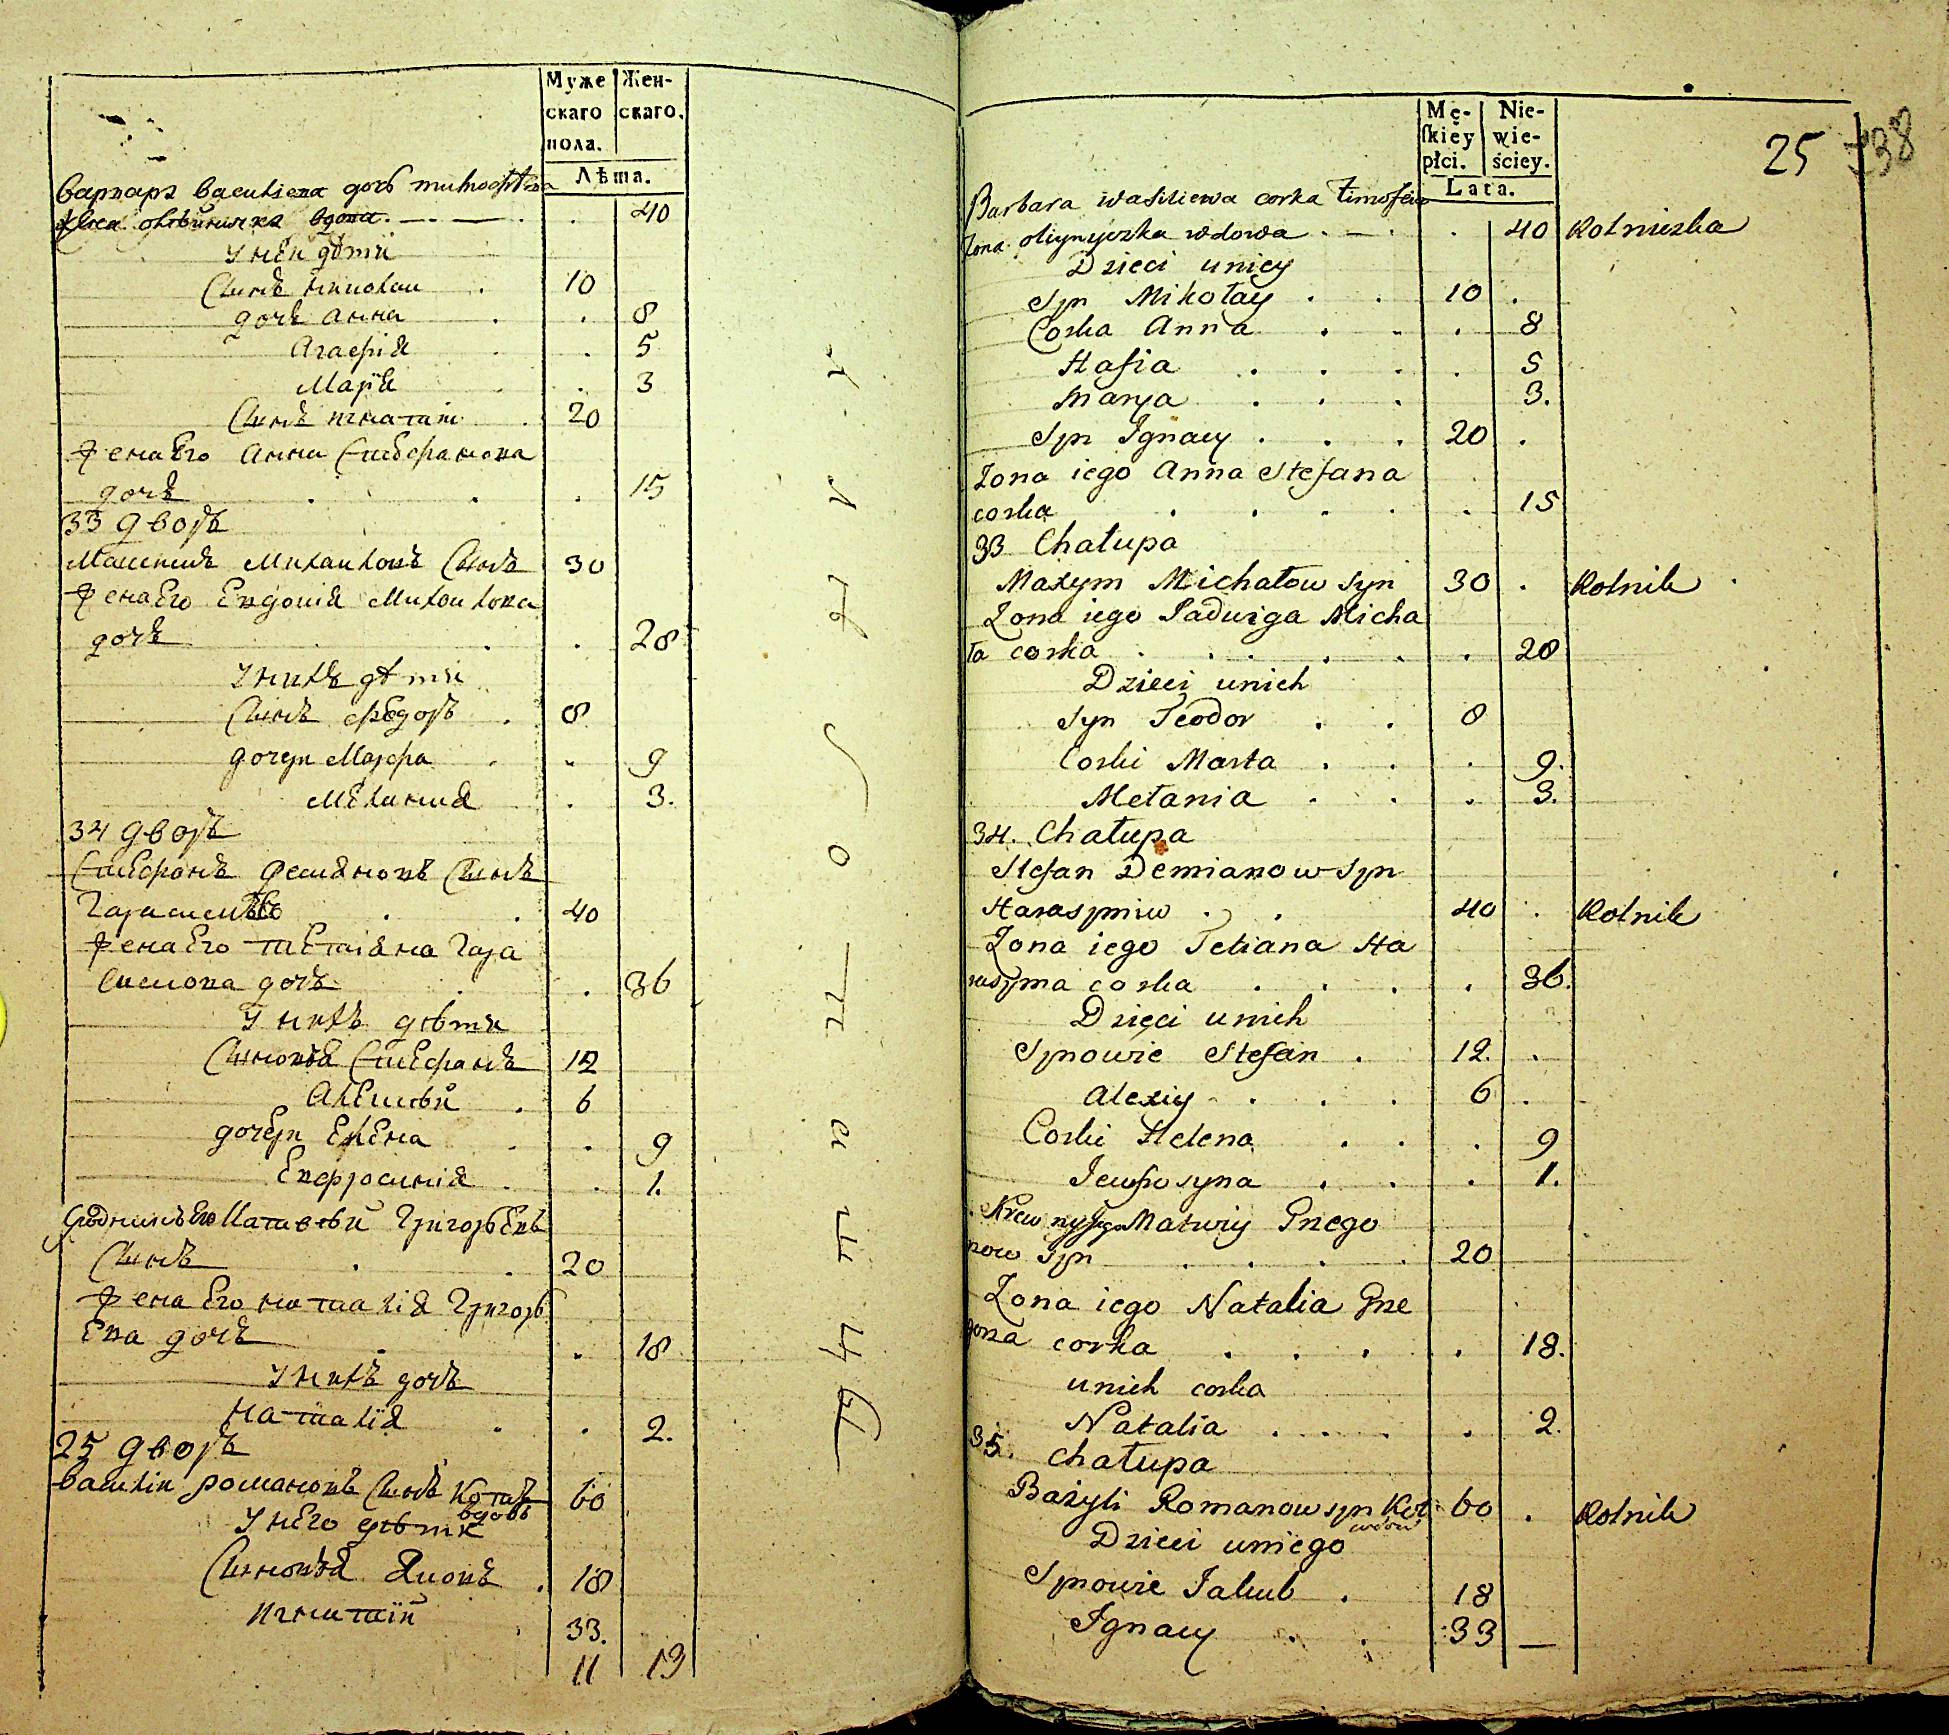 Муже
скаго
пола.
Жен-
скаго.
Лѣта.
варвара василиева дочь тимофѣева
жена олѣйничка вдова 40
У ней дѣти
Синъ николаи 10
дочь анна 8
Агафія 5
Марія 3
Синъ игнатій 20
жена Его Анна Стефанова
дочь 15
33 дворъ
Максимъ Михаиловъ Синъ 30
жена Его Евдокія Михаилова
дочь 28
У нихъ дѣти
Синъ федоръ 8
дочери Марфа 9
Мелания 3.
34 дворъ
Стефанъ Демяновъ Синъ
Гарасимовъ 40
жена Его тетіяна Гара
симова дочь 36
У нихъ дѣти
Синовья Стефанъ 12
Алексѣй 6
дочери Елена 9
Евфросинія 1.
Сродникъ Его Матвей Григорьевъ
Синъ 20
жена Его наталія Григорь
Ева дочь 18
У нихъ дочь
наталія 2.
25 дворъ
василій романовъ Синъ Котъ 60
вдовъ
У него дѣти
Синовья Яковъ 18
игнатій 33.
11 19
Mę-
skiey
płci.
Nie-
wie-
ściey.
Lata.
25 38
Barbara wasiliewa corka Timofeiowa
Zona oliynyczka wdowa 40 Rolniczka
Dzieci uniey
Syn Mikołay 10
Corka Anna 8
Hafia 5
Marya 3.
Syn Ignacy 20
Zona iego Anna Stefana
corka 15
33 Chałupa
Maxym Michałow syn 30 Rolnik
Zona iego Jadwiga Micha
ła corka 28
Dzieci unich
Syn Teodor 8
Corki Marta 9.
Mełania 3.
34. Chałupa
Stefan Demianow Syn
Harasymiw 40 Rolnik
Zona iego Tetiana Ha
rasyma corka 36.
Dzięci unich
Synowie Stefan 12.
Alexiy 6
Corki Helena 9
Jewfrosyna 1.
Krewny Iego Matwiy Grego
row Syn 20
Zona iego Natalia Gre
gora corka 18.
unich corka
Natalia 2.
35. Chałupa
Bazyli Romanow syn Kot 60 Rolnik
wdow
Dzieci uniego
Synowie Jakub 18
Ignacy 33